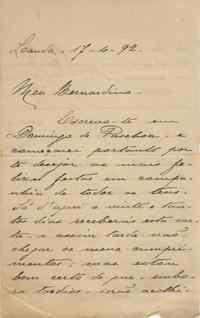 Loanda - 17-4-92.
Meu Bernardino.
Escrevo-te em
Domingo de Paschoa e
começarei portanto por
te desejar as mais fe-
lizes festas em compa-
nhia de todos os teus.
Só d'aqui a muito s tan-
tos dias receberás esta car-
ta, e assim tarde irão
chegar os meus cumpri-
mentos; mas estou
bem certo de que, embo-
ra tardios, serão acolhi-